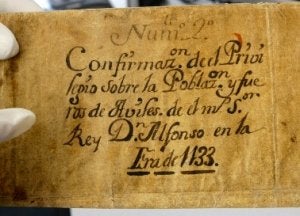 Num.º 2º
Confirmaz.on de el Privi
legio sobre la Poblaz.on y fue
ros de Aviles. de el m.s S.or
Rey D.n Alfonso en la
Era de 1133.